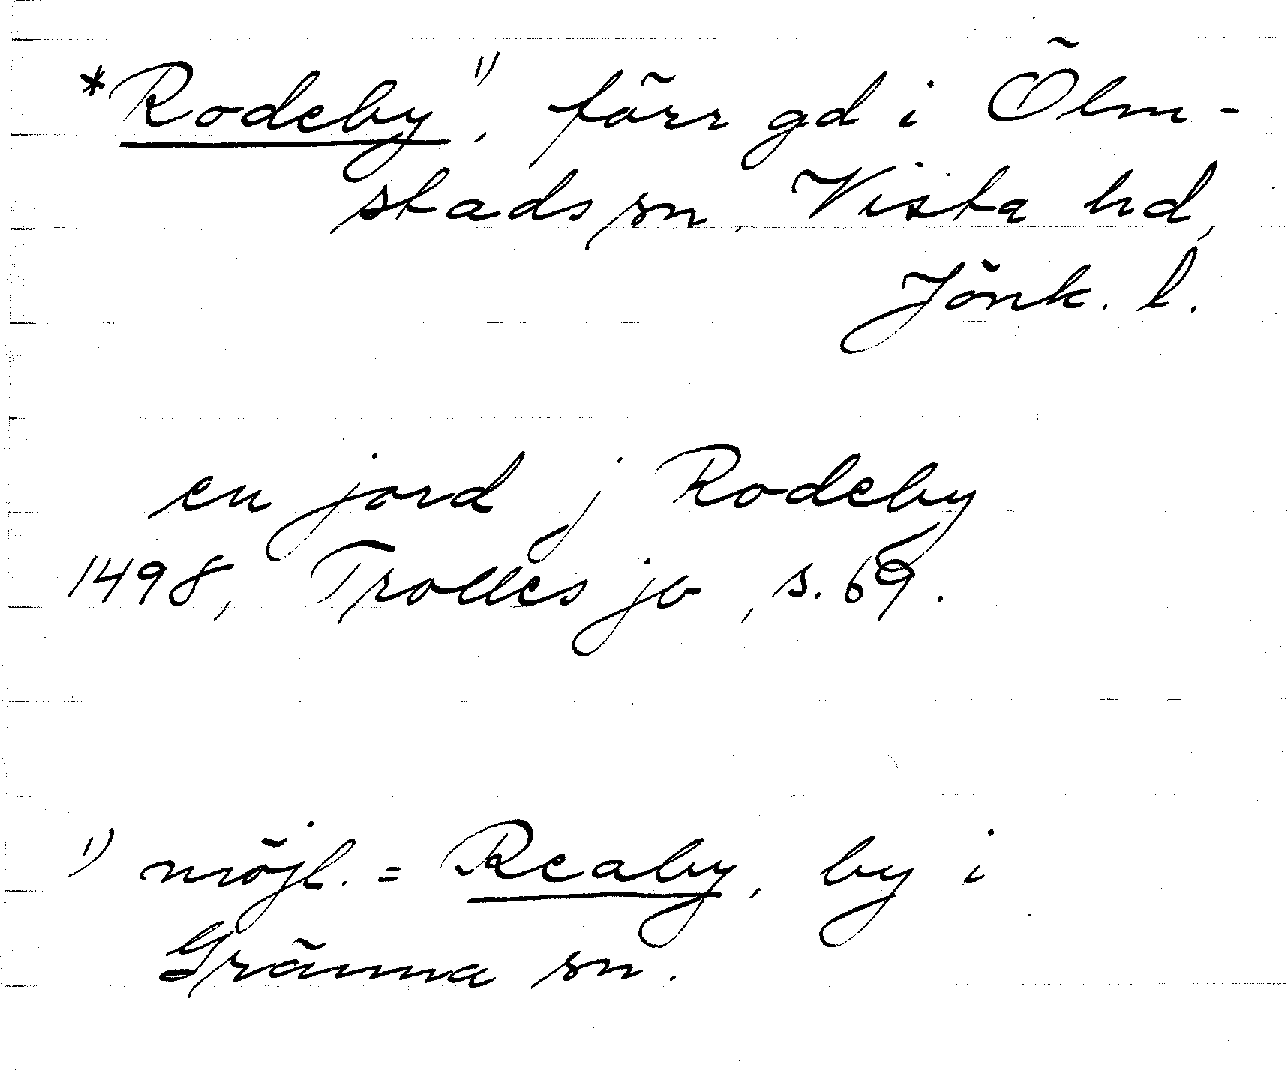 *Rodeby 1), förr gd i Ölm-
stads sn, Vista hd,
Jönk. l.
en jord j Rodeby
1498, Trolles jb, s. 69.
1) möjl. = Reaby, by i
Gränna sn.